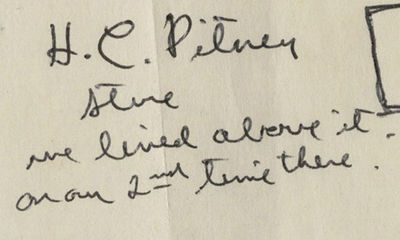 H.C. Pitney
Store
we lived above it -
on our 2nd time there .